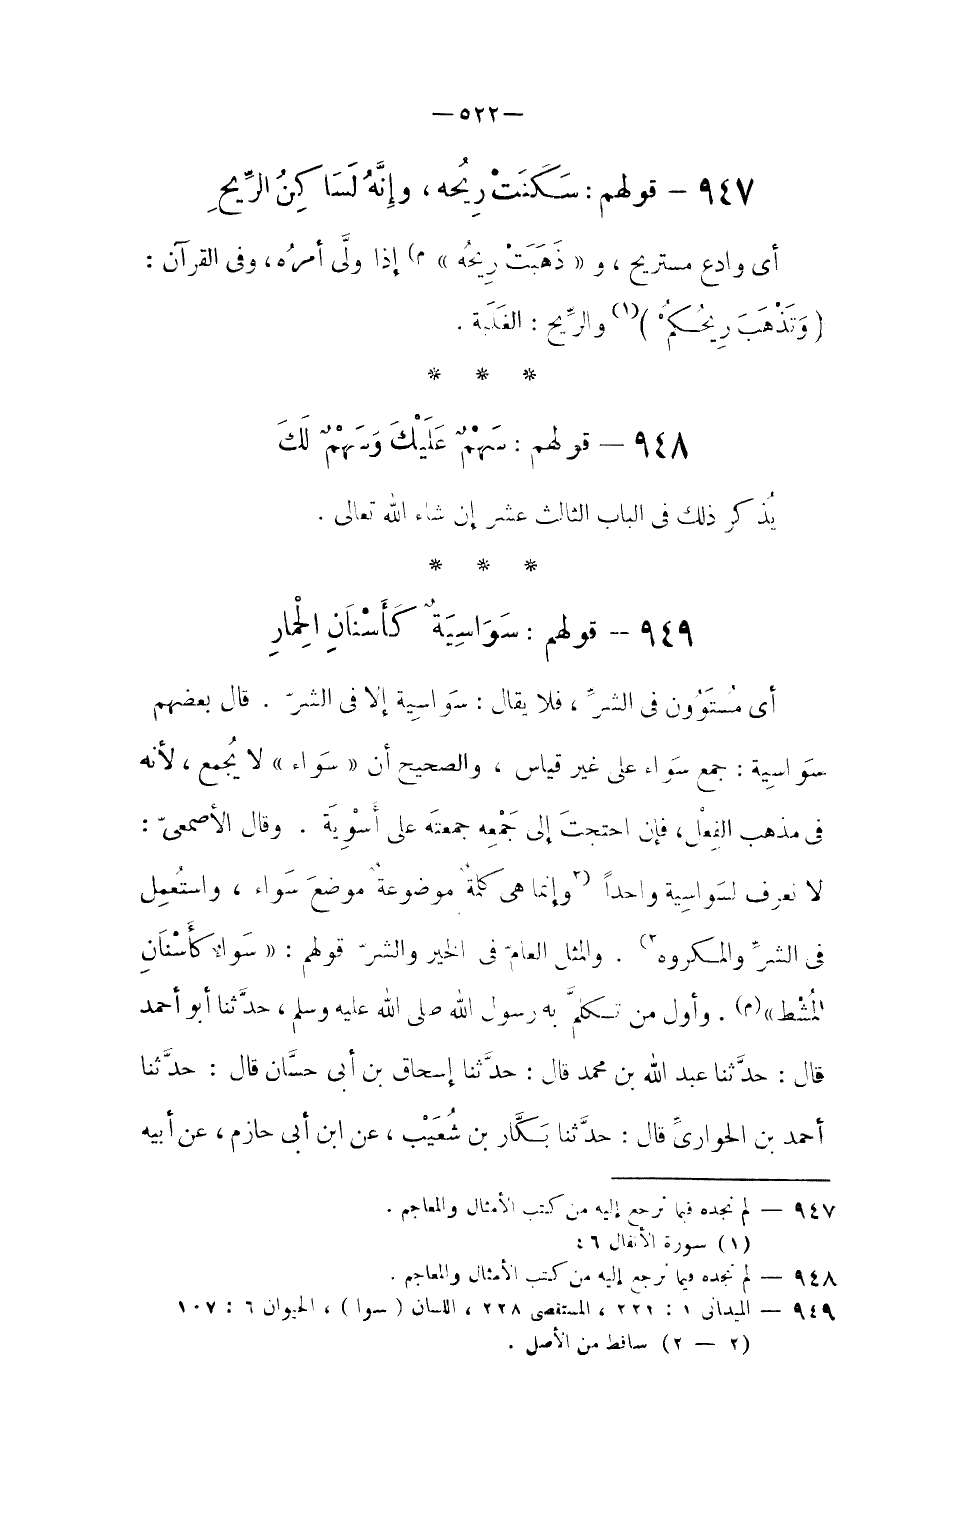 — ٥٢٢ —
٩٤٧ — قولهم : سَكَنَتْ رِيُحه ، وإِنَّهُ لَسَاكِنُ الرِّيحِ
أى وادع مستريح ، و « ذَهَبَتْ رِيحُه » (م) إذا ولَّى أمرُه ، وفى القرآن :
( وَتَذْهَبَ رِيحُكمْ )(١) والرِّيح : الغَلَبة .
* * *
٩٤٨ — قولهم : سَهْمٌ عَلَيْكَ وَسَهْمٌ لَكَ
يُذكر ذلك فى الباب الثالث عشر إن شاء الله تعالى .
* * *
٩٤٩ -- قولهم : سَوَاسِيَةٌ كَأَسْنَانِ الْحِمارِ
أى مُستَوُون فى الشرِّ ، فلا يقال : سَواسِية إلا فى الشرّ . قال بعضهم
سَواسِية : جمع سَواء على غير قياس ، والصحيح أن « سَواء » لا يُجمع ، لأنه
فى مذهب الفِعْل ، فإن احتجتَ إلى جَمْعِه جمعتَه على أَسْوِيَة . وقال الأصمعىّ :
لا نعرف لسَواسية واحداً (٢ وإنما هى كلمةٌ موضوعةٌ موضعَ سَواء ، واستُعمِل
فى الشرِّ والمكروه ٢) . والمثل العامّ فى الخير والشرّ قولهم : « سَواء كَأَسْنَانِ
الْمُشْط »(م) . وأول من تكلَّم به رسول الله صلى الله عليه وسلم ، حدَّثنا أبو أحمد
قال : حدَّثنا عبد الله بن محمد قال : حدَّثنا إسحاق بن أبى حسَّان قال : حدَّثنا
أحمد بن الحوارىِّ قال : حدَّثنا بَكَّار بن شُعَيْب ، عن ابن أبى حازم ، عن أبيه
٩٤٧ — لم نجده فيما نرجع إليه من كتب الأمثال والمعاجم .
(١) سورة الأنفال ٤٦
٩٤٨ — لم نجده فيما نرجع إليه من كتب الأمثال والمعاجم .
٩٤٩ — الميدانى ١ : ٢٢١ ، المستقصى ٢٢٨ ، اللسان ( سوا ) ، الحيوان ٦ : ١٠٧
(٢ — ٢) ساقط من الأصل .